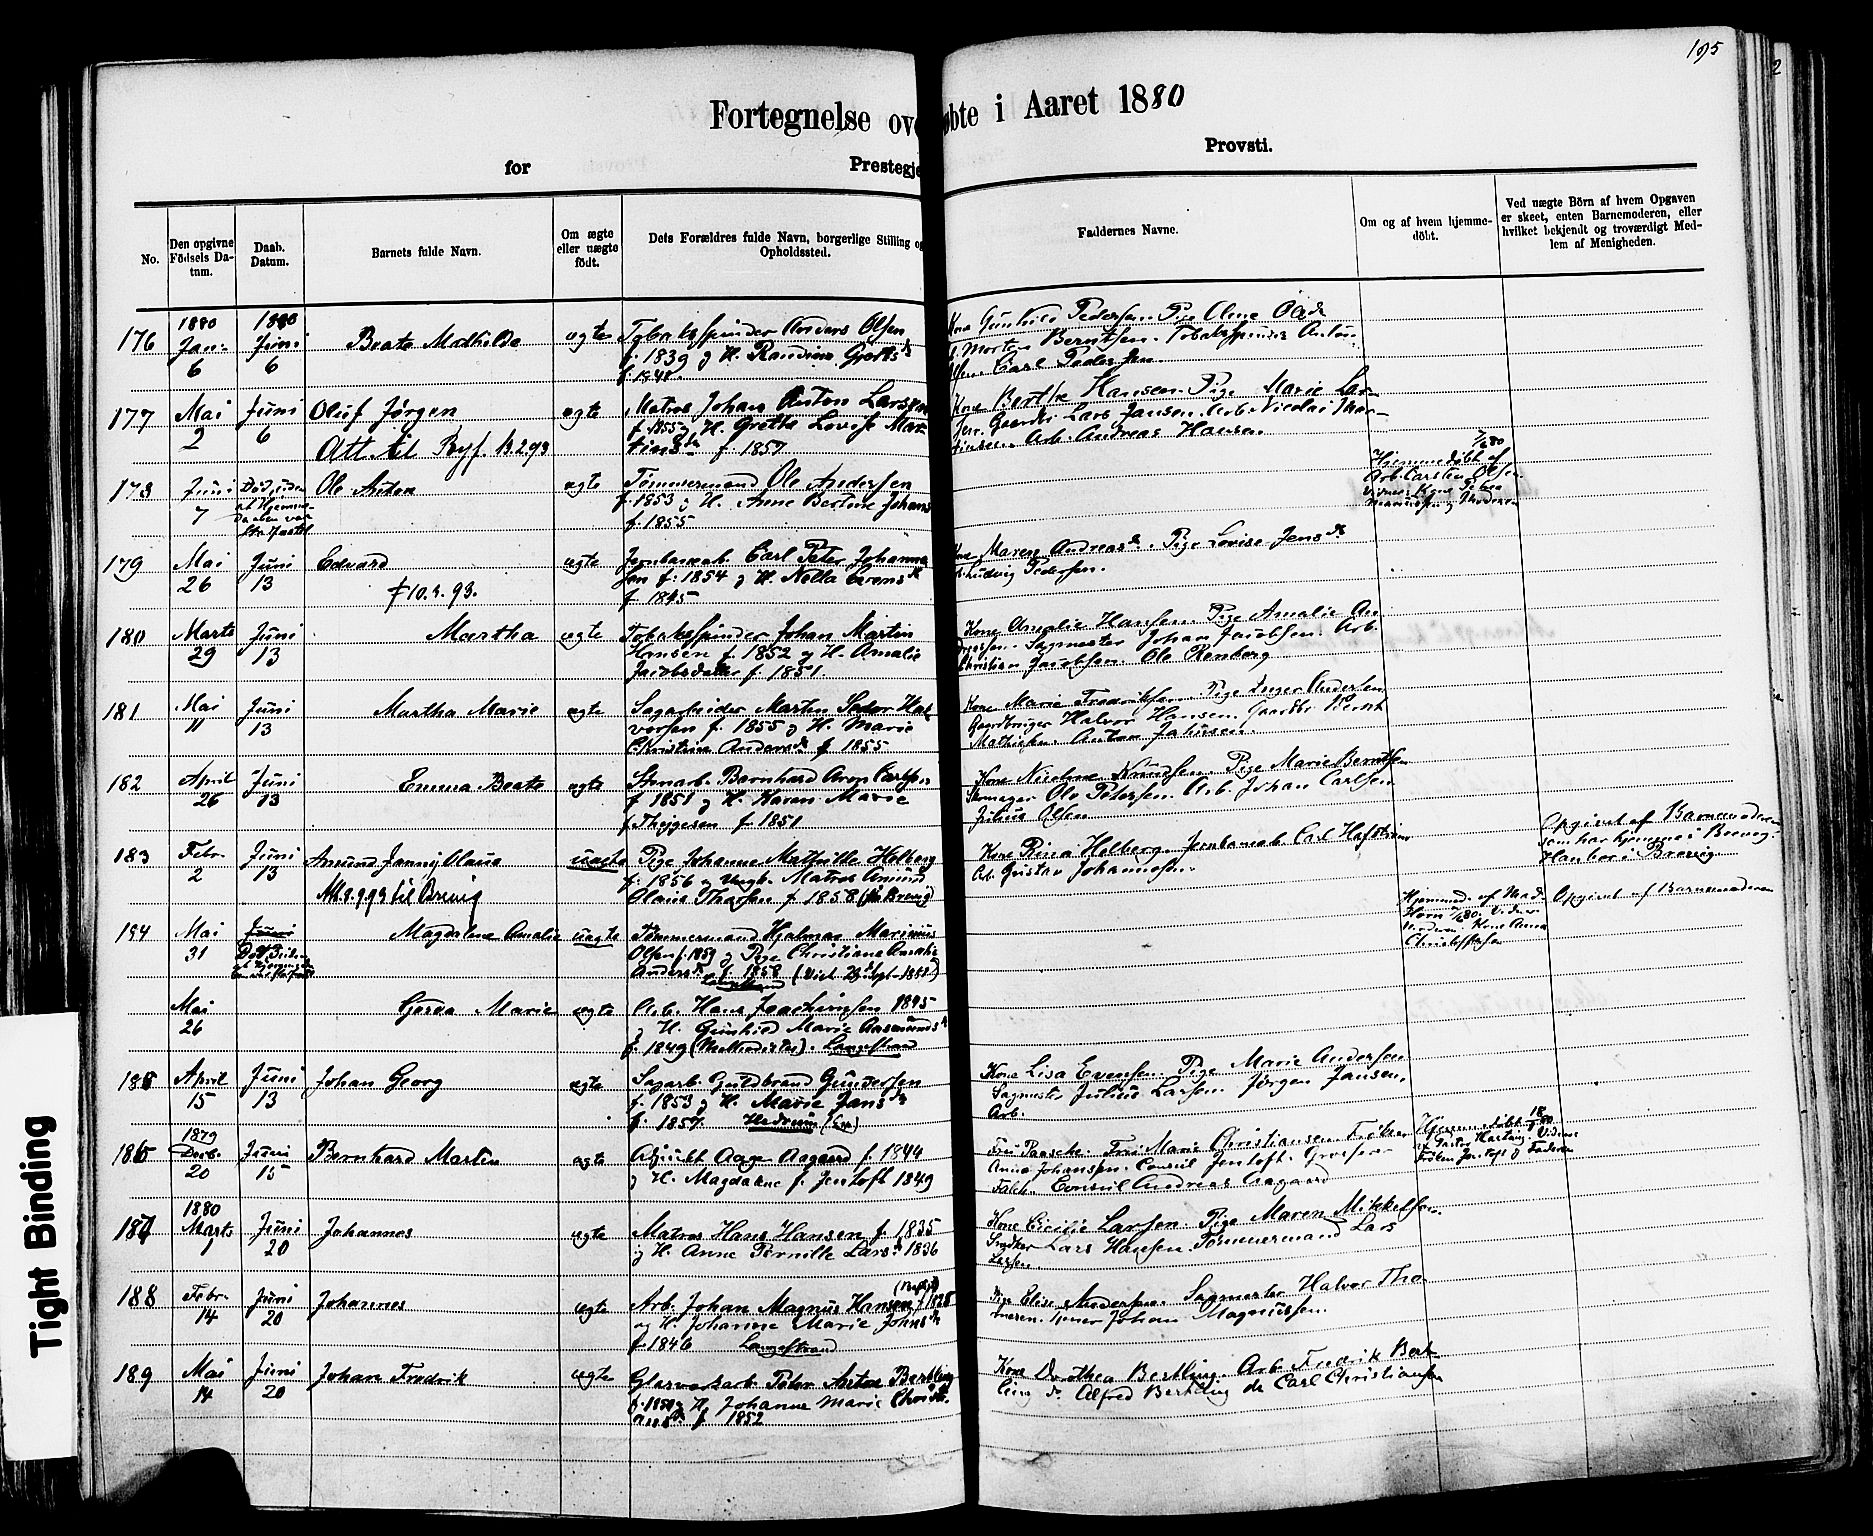 195
2
Fortegnelse ov øbte i Aaret 1880
for Prestegje Provsti.
No.
Den opgivne Födsels Datum.
Daab. Datum.
Barnets fulde Navn.
Om ægte eller uægte födt.
Dets Forældres fulde Navn, borgerlige Stilling og Opholdssted.
Faddernes Navne.
Om og af hvem hjemmedöbt.
Ved uægte Börn af hvem Opgaven er skeet, enten Barnemoderen, eller hvilket bekjendt og troværdigt Medlem af Menigheden.
176 1880 Jan. 6 1880 Juni 6 Beate Mathilde ægte Tobakspinder Anders Olsen
f. 1839 og H. Randine Gjerts d.
f. 1841.
Kone Gunhild Pedersen. Pige Oline Ols d.
Morten Berntsen. Tobakspinder Anton
Olsen. Carl Pedersen
177 Mai 2 Juni 6 Oluf Jørgen ægte Matros Johan Anton Larsen
f. 1855 og H. Grethe Lovise Mar-
tins d. f. 1857
Att. til 13.2.93
Kone Berthe Hansen. Pige Marie Lar-
sen. Gaardbr. Lars Jansen. Arb. Nicolai Mar-
tinsen. Arb. Andreas Hansen.
178 Juni 7 Ole Anton ægte Tømmermand Ole Andersen
f. 1853 og H. Anne Bertine Johans
f. 1855
Død uden at Hjemme-Daaben var Stadfæstet
7/6 80
Hjemmedøbt af
Arb. Carsten Olsen
179 Mai 26 Juni 13 Edvard ægte Jernbanearb. Carl Peter Johanne-
sen f. 1854 og H. Nella Svens d.
f. 1845
† 10.2.93.
Kone Maren Andreas d. Pige Lovise Jens d.
Ludvig Pedersen.
180 Marts 29 Juni 13 Martha ægte Tobakspinder Johan Martin
Hansen f. 1852 og H. Amalie
Jacobsdatter f. 1851.
Kone Amalie Hansen. Pige Amalie An-
dersen. Sagmester Johan Jacobsen. Arb.
Christian Jacobsen. Ole Renberg
181 Mai 11 Juni 13 Martha Marie ægte Sagarbeider Martin Hal-
vorsen f. 1855 og H. Marie
Christine Anders d. f. 1855
Kone Marie Fredriksen. Pige Inger Andersen
Gaardbruger Halvor Hansen. Gaardbr. Bernt
Mathisen. Anton Johnsen.
182 April 26 Juni 13 Emma Beate ægte Barnhard Aron Carlsen
f. 1851 og H. Karen Marie
f. Thygesen f. 1851
Kone Knudsen. Pige Marie Berntsen
Skomager Ole Petersen. Arb. Johan Carlsen
Julius Olsen
183 Febr. 2 Juni 13 Amund Janny Olaus uægte Pige Johanne Mathilde Holberg
f. 1856 og Ungk. Matros Amund
Olaus Thorsen f. 1858 (fra Brevig)
til Brevig
Kone Rina Holberg. Jernbanearb. Carl Hafstrøm
Arb. Gustav Johannesen.
Opgivet af Barnemoderen
som har hjemme i Brevig.
Han bor i Brevig
184 Mai 31 Juni Magdalene Amalie uægte Tømmermand Hjalmar Marinius
Olsen f. 1859 og Pige Christiane Amalie
Anders d. f. 1858 (Viet 23 Sept. 1880)
Langestrand
Hjemmed. af Mad.
Horn 7/6 80. Vidner
Moderen. Kone Anna
Christoffersen
Opgivet af Barnemoderen
Mai 26 Gerda Marie ægte Arb. Hans Joachimsen 1845
og H. Gunhild Marie Aasmunds d.
f. 1849 (Methodister). Langestrand
185 April 15 Juni 13 Johan Georg ægte Sagarb. Guldbrand Gundersen
f. 1853 og H. Marie Jans d.
f. 1857. Hedrum
Kone Lisa Evensen. Pige Marie Andersen
Sagmester Julius Larsen. Jørgen Jansen.
Arb.
186 1879 Decbr. 20 Juni 15 Bernhard Martin ægte Adjunkt Aage Aagaard f. 1844
og H. Magdalene f. Jentoft 1849
Fru Paasche. Fru Marie Christiansen. Frøken
Anna Johansen. Consul Jentoft. Grosserer
Falch. Consul Andreas Aagaard
Hjemmedøbt
af Pastor Hartvig. Vidner
Frøken Jentoft og Faderen
187 1880 Marts 1 Juni 20 Johannes ægte Matros Hans Hansen f. 1835
og H. Anne Pernille Lars d. 1836
Kone Cicilie Larsen. Pige Maren Mikkelsen.
Snedker Lars Hansen. Tømmermand Lars
Larsen.
188 Febr. 14 Juni 20 Johannes ægte Arb. Johan Magnus Hansen f. 1828
og H. Johanne Marie Johns d.
f. 1846 Langestrand
Pige Elise Andersen. Sagmester Halvor Tho-
mesen. Johan Magnussen.
189 Mai 14 Juni 20 Johan Fredrik ægte Glasværksarb. Peter Anton Bertling
f. 1850 og H. Johanne Marie Christi-
ans d. f. 1852
Kone Dorothea Bertling. Arb. Fredrik Bert-
ling. do. Alfred Bertling do. Carl Christiansen
Tight Binding